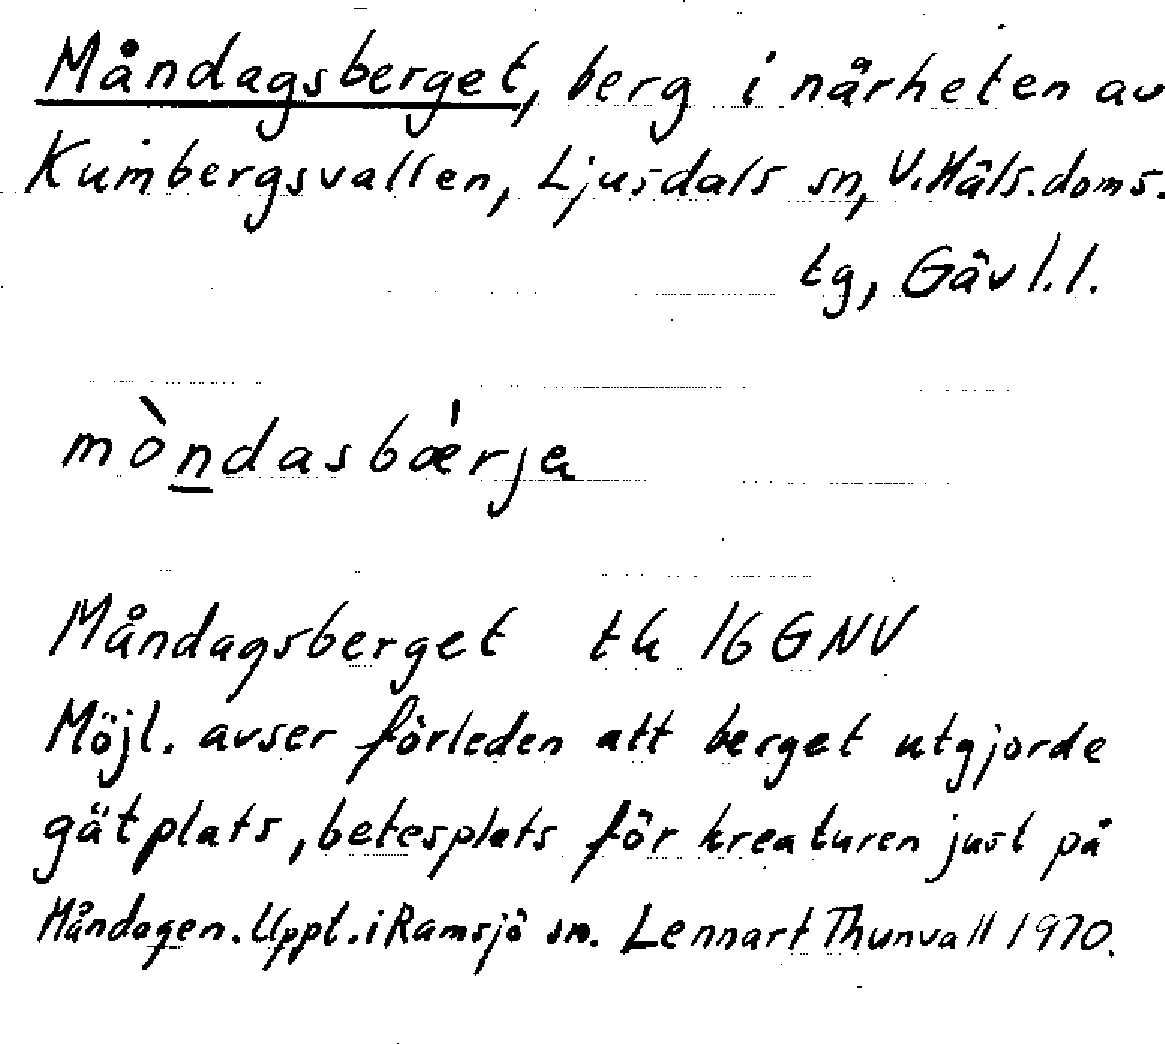 Måndagsberget, berg i närheten av
Kumbergsvallen, Ljusdals sn, V. Häls. doms.
tg, Gävl. l.
mòndasbǽrja
Måndagsberget tk 16 G NV
Möjl. avser förleden att berget utgjorde
gätplats, betesplats för kreaturen just på
Måndagen. Uppt. i Ramsjö sn. Lennart Thunvall 1970.